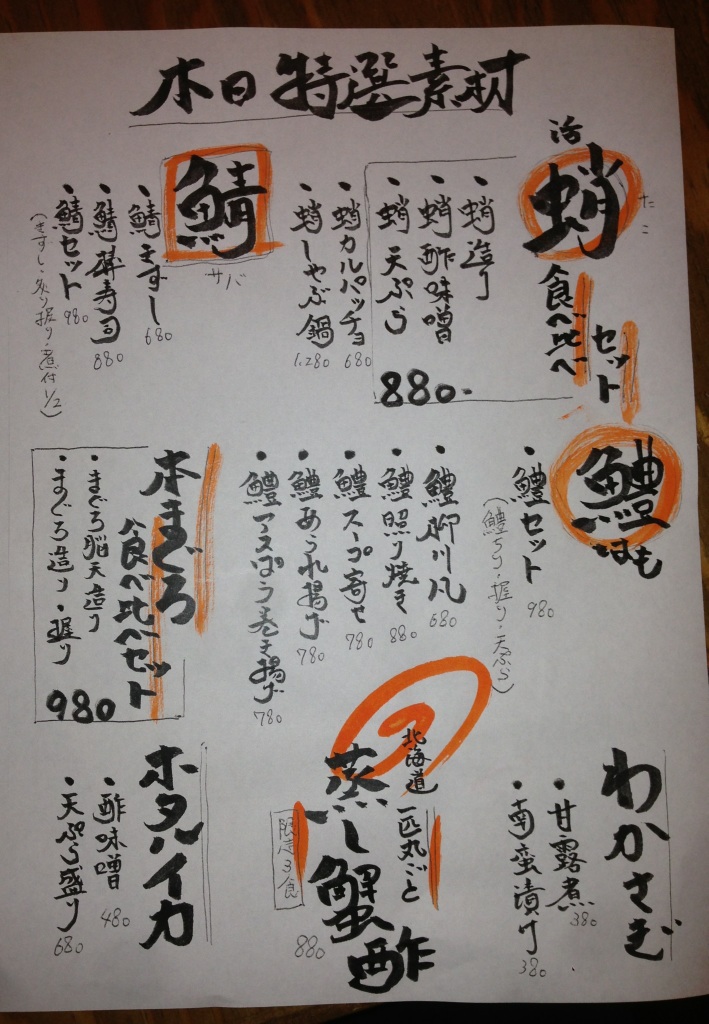 本日特選素材
活
蛸
たこ
食べ比べ
セット
・蛸造り
・蛸酢味噌
・蛸天ぷら
880-
・蛸カルパッチョ 680
・蛸しゃぶ鍋 1,280
鯖
サバ
・鯖きずし 680
・鯖棒寿司 880
・鯖セット 980
(きずし・炙り握り・煮付1/2)
鱧
はも
・鱧セット 980
(鱧ちり・握り・天ぷら)
・鱧柳川風 680
・鱧照り焼き 880
・鱧スープ寄せ 780
・鱧あられ揚げ 780
・鱧アスパラ巻き揚げ 780
本まぐろ
食べ比べセット
・まぐろ脳天造り
・まぐろ造り・握り
980
わかさぎ
・甘露煮 380
・南蛮漬け 380
北海道
一匹丸ごと
蒸し蟹酢
限定3食
880
ホタルイカ
・酢味噌 480
・天ぷら盛り 680